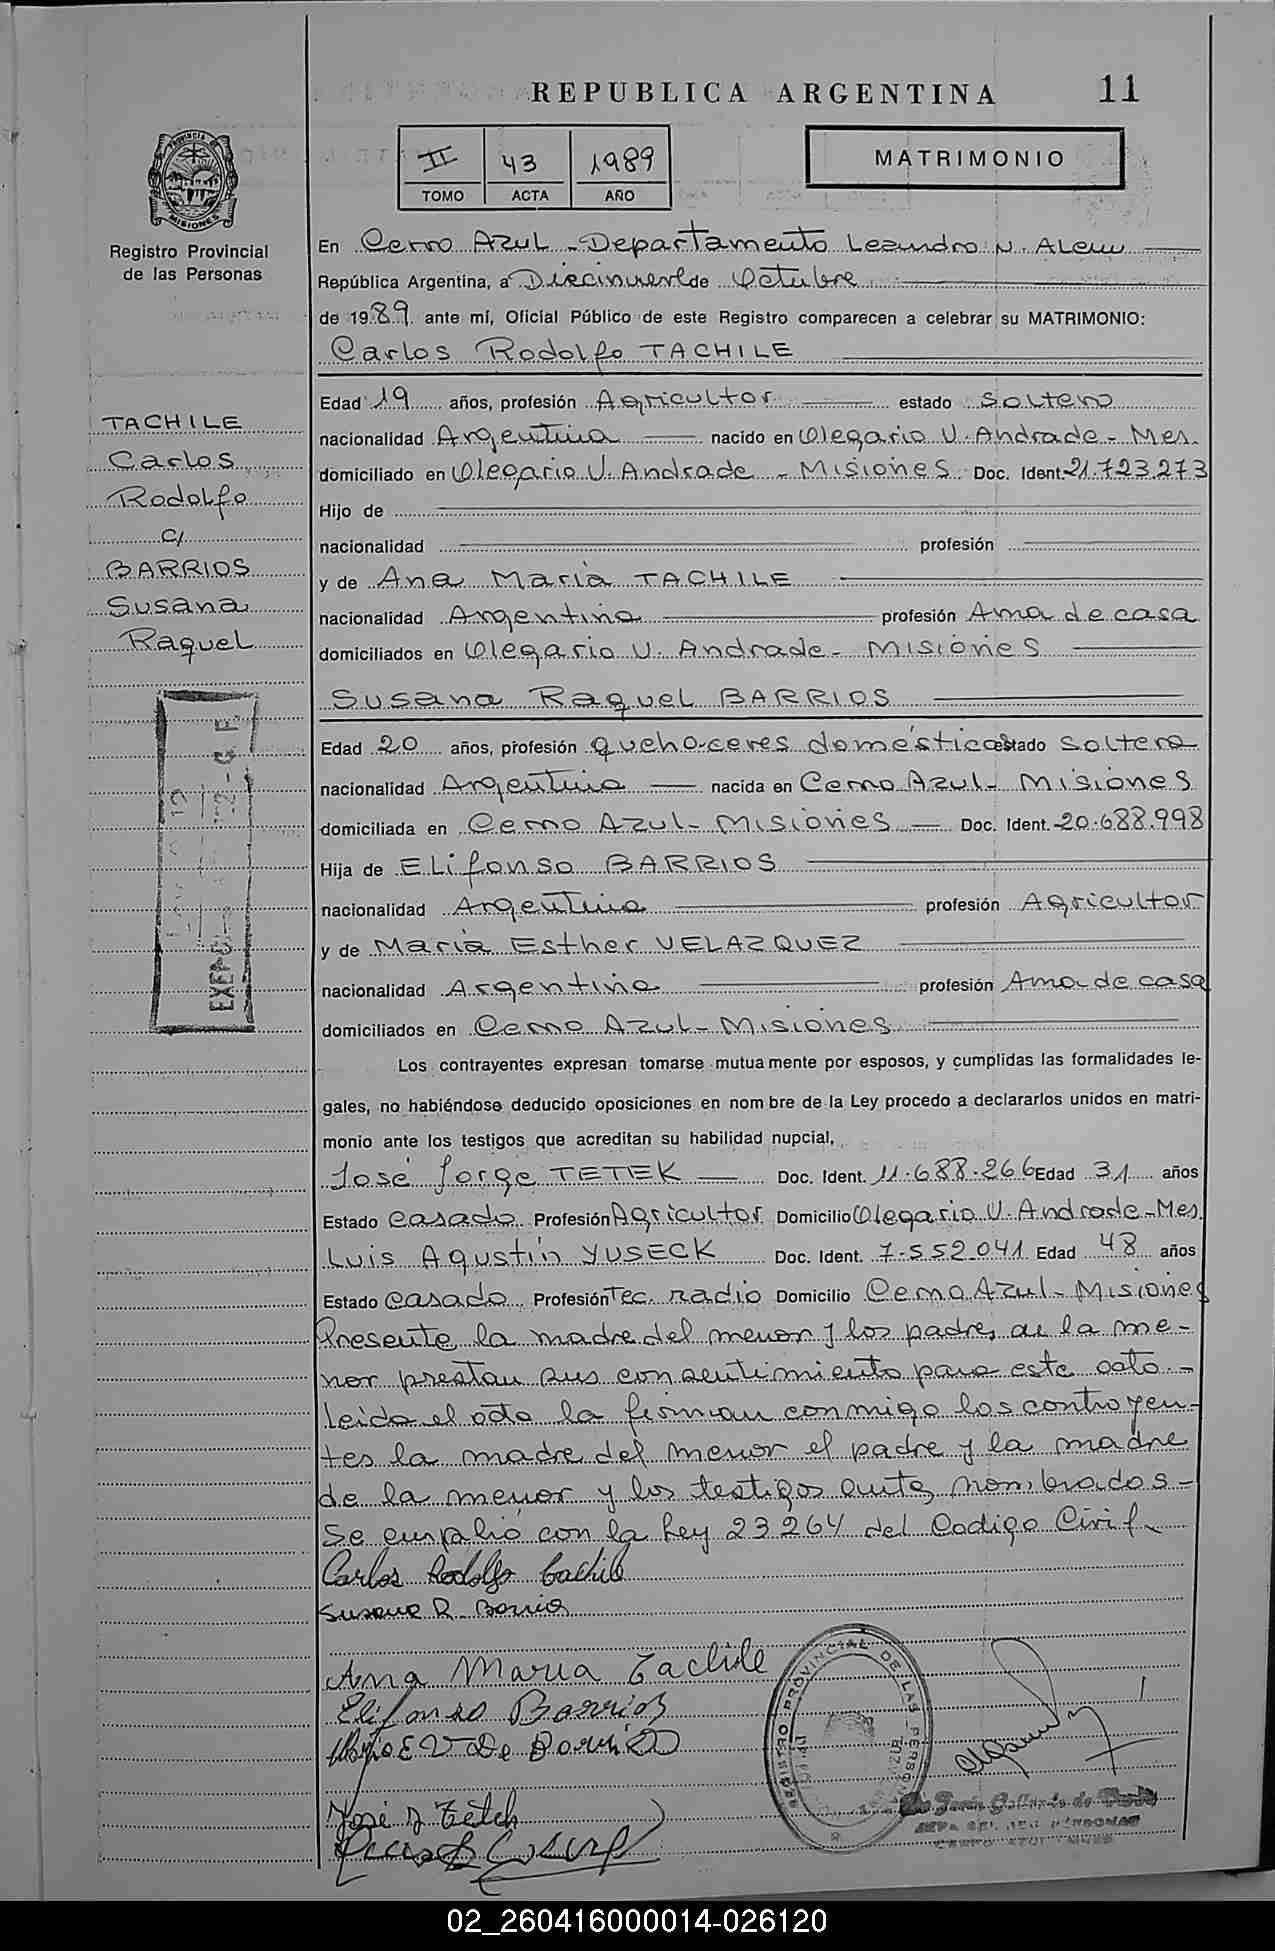 REPUBLICA ARGENTINA
11
II 43 1989
TOMO ACTA AÑO
MATRIMONIO
Provincia de
MISIONES
Registro Provincial
de las Personas
En Cerro Azul - Departamento Leandro N. Alem
República Argentina, a Diecinueve de Octubre
de 1989. ante mí, Oficial Público de este Registro comparecen a celebrar su MATRIMONIO:
Carlos Rodolfo TACHILE
TACHILE
Carlos
Rodolfo
c/
BARRIOS
Susana
Raquel
Edad 19 años, profesión Agricultor estado soltero
nacionalidad Argentina nacido en Olegario V. Andrade - Mes.
domiciliado en Olegario V. Andrade - Misiones Doc. Ident. 21.723.273
Hijo de
nacionalidad profesión
y de Ana María TACHILE
nacionalidad Argentina profesión Ama de casa
domiciliados en Olegario V. Andrade - Misiones
Susana Raquel BARRIOS
Edad 20 años, profesión quehaceres domésticos estado soltera
nacionalidad Argentina nacida en Cerro Azul - Misiones
domiciliada en Cerro Azul - Misiones Doc. Ident. 20.688.998
Hija de Elifonso BARRIOS
nacionalidad Argentina profesión Agricultor
y de María Esther VELAZQUEZ
nacionalidad Argentina profesión Ama de casa
domiciliados en Cerro Azul - Misiones
Los contrayentes expresan tomarse mutuamente por esposos, y cumplidas las formalidades le-
gales, no habiéndose deducido oposiciones en nombre de la Ley procedo a declararlos unidos en matri-
monio ante los testigos que acreditan su habilidad nupcial,
José Jorge TETEK Doc. Ident. 11.688.266 Edad 31 años
Estado casado Profesión Agricultor Domicilio Olegario V. Andrade - Mes.
Luis Agustín YUSECK Doc. Ident. 7.552.041 Edad 48 años
Estado casado Profesión Tec. radio Domicilio Cerro Azul - Misiones
Presente la madre del menor y los padres de la me-
nor prestan sus consentimiento para este acto. -
Leida el acta la firman conmigo los contrayen-
tes la madre del menor el padre y la madre
de la menor y los testigos antes nombrados -
Se cumplió con la Ley 23264 del Codigo Civil.
Carlos Rodolfo Tachile
Susana R. Barrios
Ana Maria Tachile
Elifonso Barrios
Maria E V De Barrios
José J Tetek
REGISTRO PROVINCIAL DE LAS PERSONAS
02_260416000014-026120